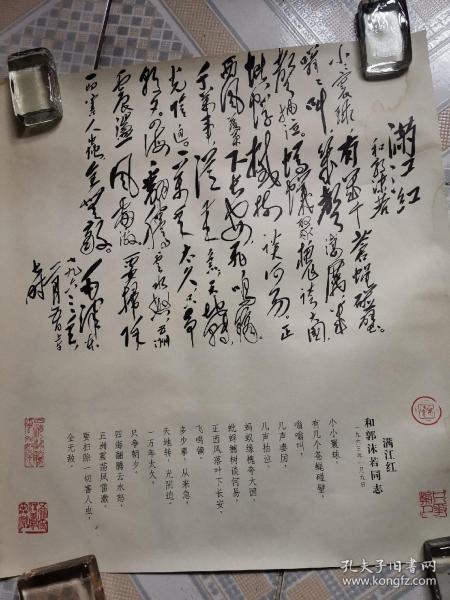 满江红
和郭沫若
小小寰球 有几个苍蝇碰壁。
嗡嗡叫 几声凄厉 几
声抽泣。蚂蚁缘槐夸大国
蚍蜉撼树谈何易。正
西风落叶下长安 飞鸣镝
多少事 从来急 天地转
光阴迫。一万年太久 只争
朝夕。四海翻腾云水怒 五洲
震荡风雷激 要扫除
一切害人虫 全无敌。
毛泽东
满江红
和郭沫若同志
一九六三年一月九日
小小寰球,
有几个苍蝇碰壁。
嗡嗡叫,
几声凄厉,
几声抽泣。
蚂蚁缘槐夸大国,
蚍蜉撼树谈何易。
正西风落叶下长安,
飞鸣镝。
多少事,从来急;
天地转,光阴迫。
一万年太久,
只争朝夕。
四海翻腾云水怒,
五洲震荡风雷激。
要扫除一切害人虫,
全无敌。
孔夫子旧书网
www.kongfz.com